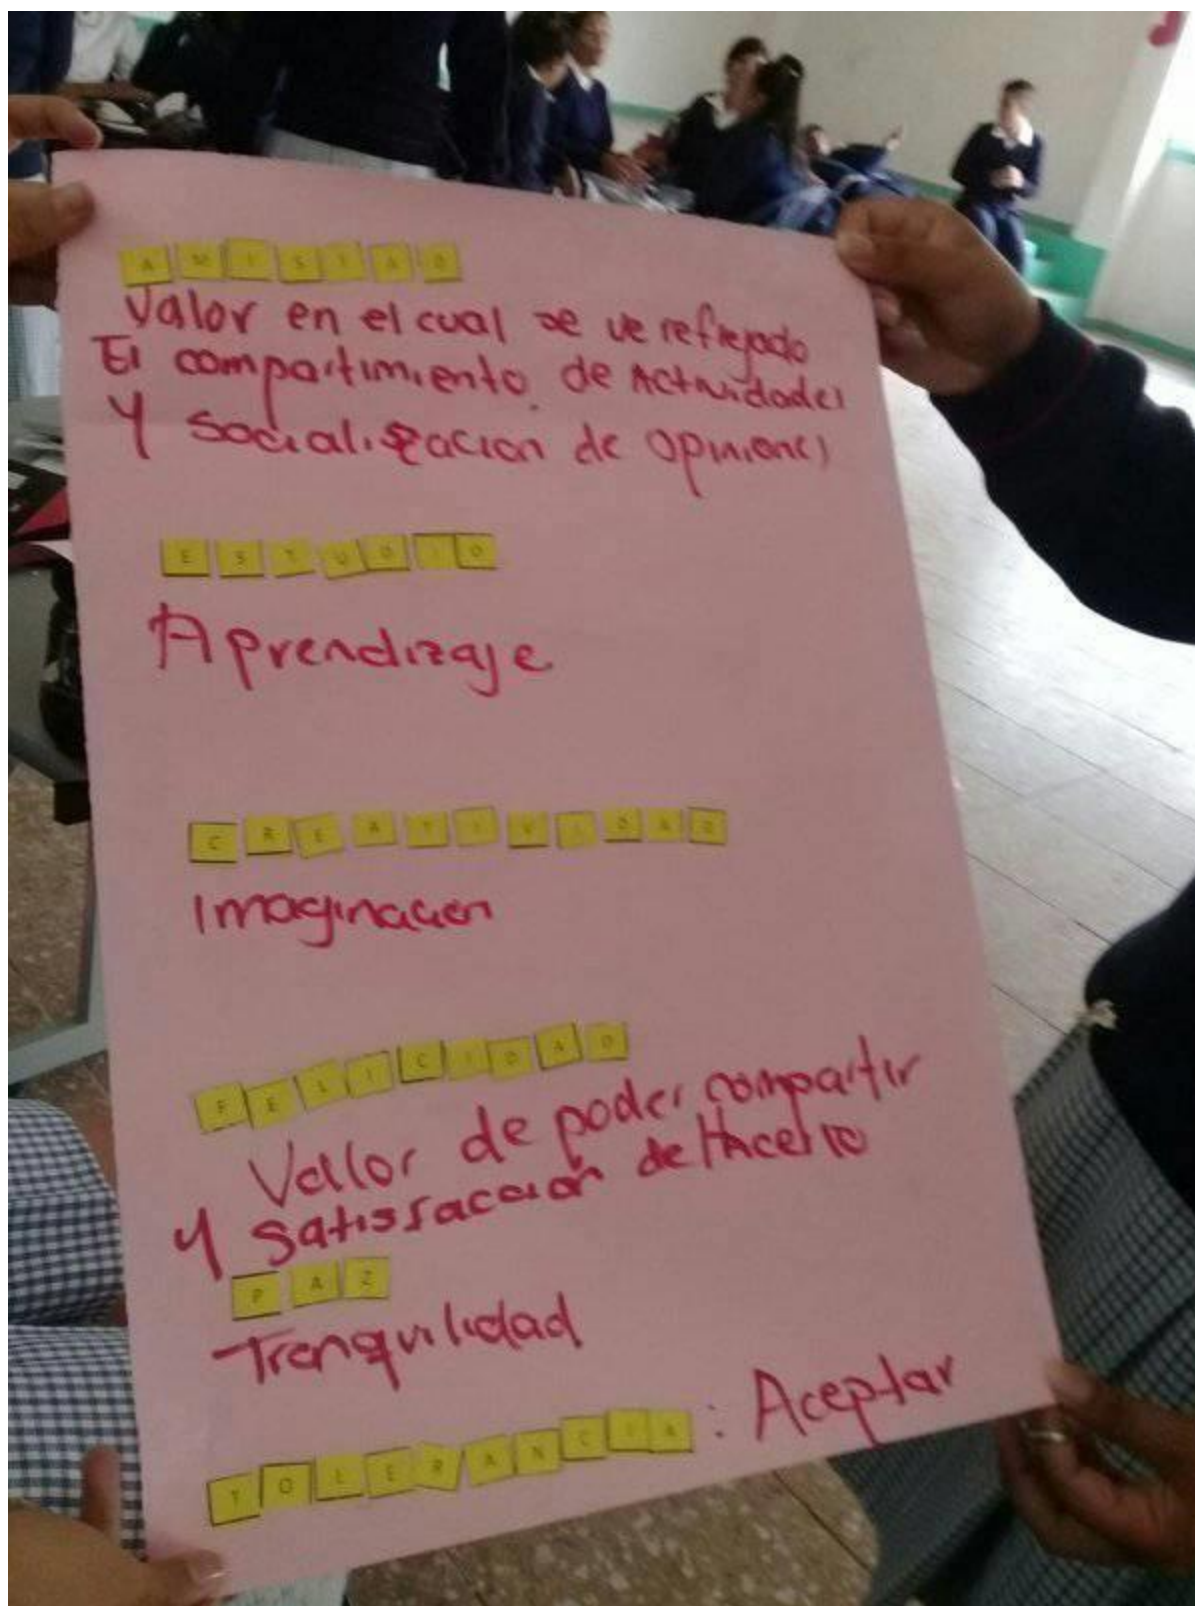 AMISTAD
Valor en el cual se ve reflejado
El compartimiento de Actividades
Y Socialización de opiniones
ESTUDIO
Aprendizaje
CREATIVIDAD
Imaginacion
FELICIDAD
Vallor de poder compartir
y Satisfaccion de Hacerlo
PAZ
Tranquilidad
TOLERANCIA : Aceptar